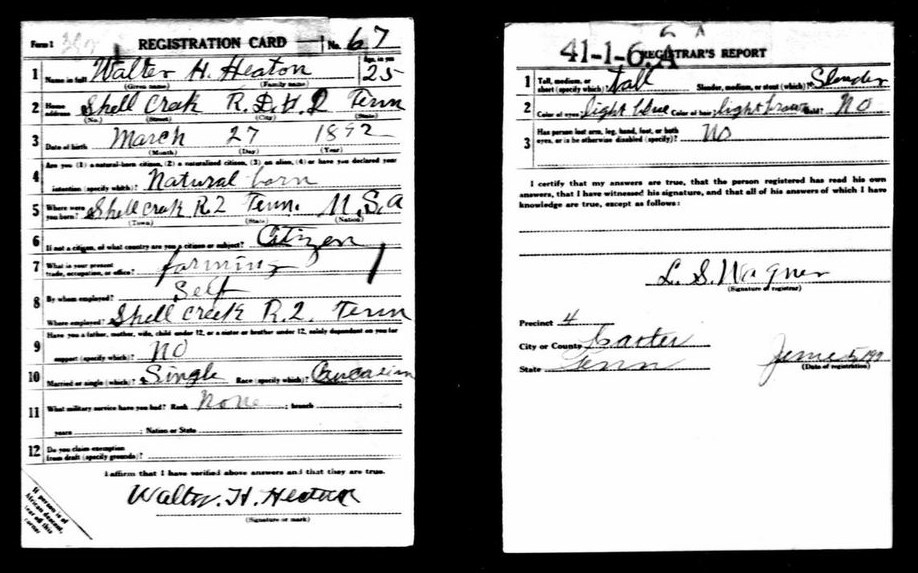 Form 1
REGISTRATION CARD No. 67
1 Name in full Walter H. Heaton Age, in yrs 25
(Given name) (Family name)
2 Home address Shell Creek R.F.D. 2 Tenn
(No.) (Street) (City) (State)
3 Date of birth March 27 1892
(Month) (Day) (Year)
4 Are you (1) a natural-born citizen, (2) a naturalized citizen, (3) an alien, (4) or have you declared your
intention (specify which)? Natural born
5 Where were you born? Shell creek R.2 Tenn. U.S.A
(Town) (State) (Nation)
6 If not a citizen, of what country are you a citizen or subject? Citizen
7 What is your present trade, occupation, or office? farming
8 By whom employed? Self
Where employed? Shell creek R.2. Tenn
9 Have you a father, mother, wife, child under 12, or a sister or brother under 12, solely dependent on you for
support (specify which)? NO
10 Married or single (which)? Single Race (specify which)? Caucasian
11 What military service have you had? Rank None ; branch ;
years ; Nation or State
12 Do you claim exemption from draft (specify grounds)?
I affirm that I have verified above answers and that they are true.
Walter. H. Heaton
(Signature or mark)
If person is of
African descent,
tear off this
corner
41-1-6 A
REGISTRAR'S REPORT
1 Tall, medium, or short (specify which)? tall Slender, medium, or stout (which)? Slender
2 Color of eyes? light blue Color of hair? light brown Bald? NO
3 Has person lost arm, leg, hand, foot, or both
eyes, or is he otherwise disabled (specify)? NO
I certify that my answers are true, that the person registered has read his own
answers, that I have witnessed his signature, and that all of his answers of which I have
knowledge are true, except as follows:
L. S. Wagner
(Signature of registrar)
Precinct 4
City or County Carter
State Tenn
June 5, 191
(Date of registration)